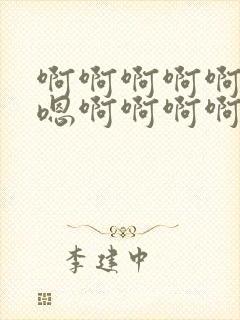 啊啊啊啊啊
嗯啊啊啊啊
李建中